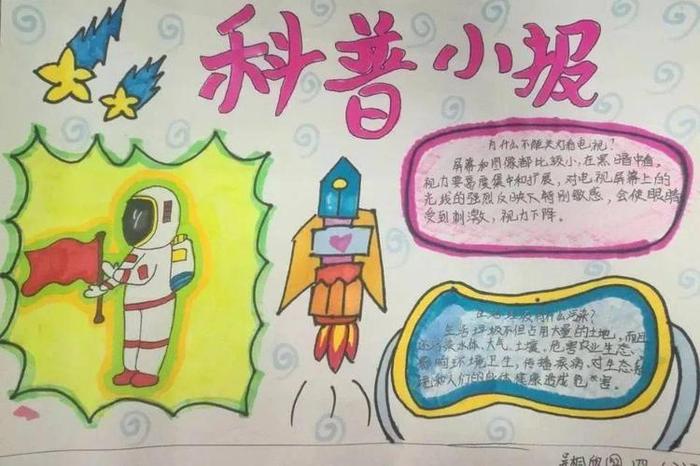 科普小报
为什么不能关灯看电视?
屏幕和图像都比较小,在黑暗中看,
视力要高度集中和扩展,对电视屏幕上的
光线的强烈反映下特别敏感,会使眼睛
受到刺激,视力下降。
生活垃圾有什么污染?
生活垃圾不但占用大量的土地,而且
还污染水体、大气、土壤、危害农业生态、
影响环境卫生,传播疾病,对生态系
人们的身体健康造成危害。
四